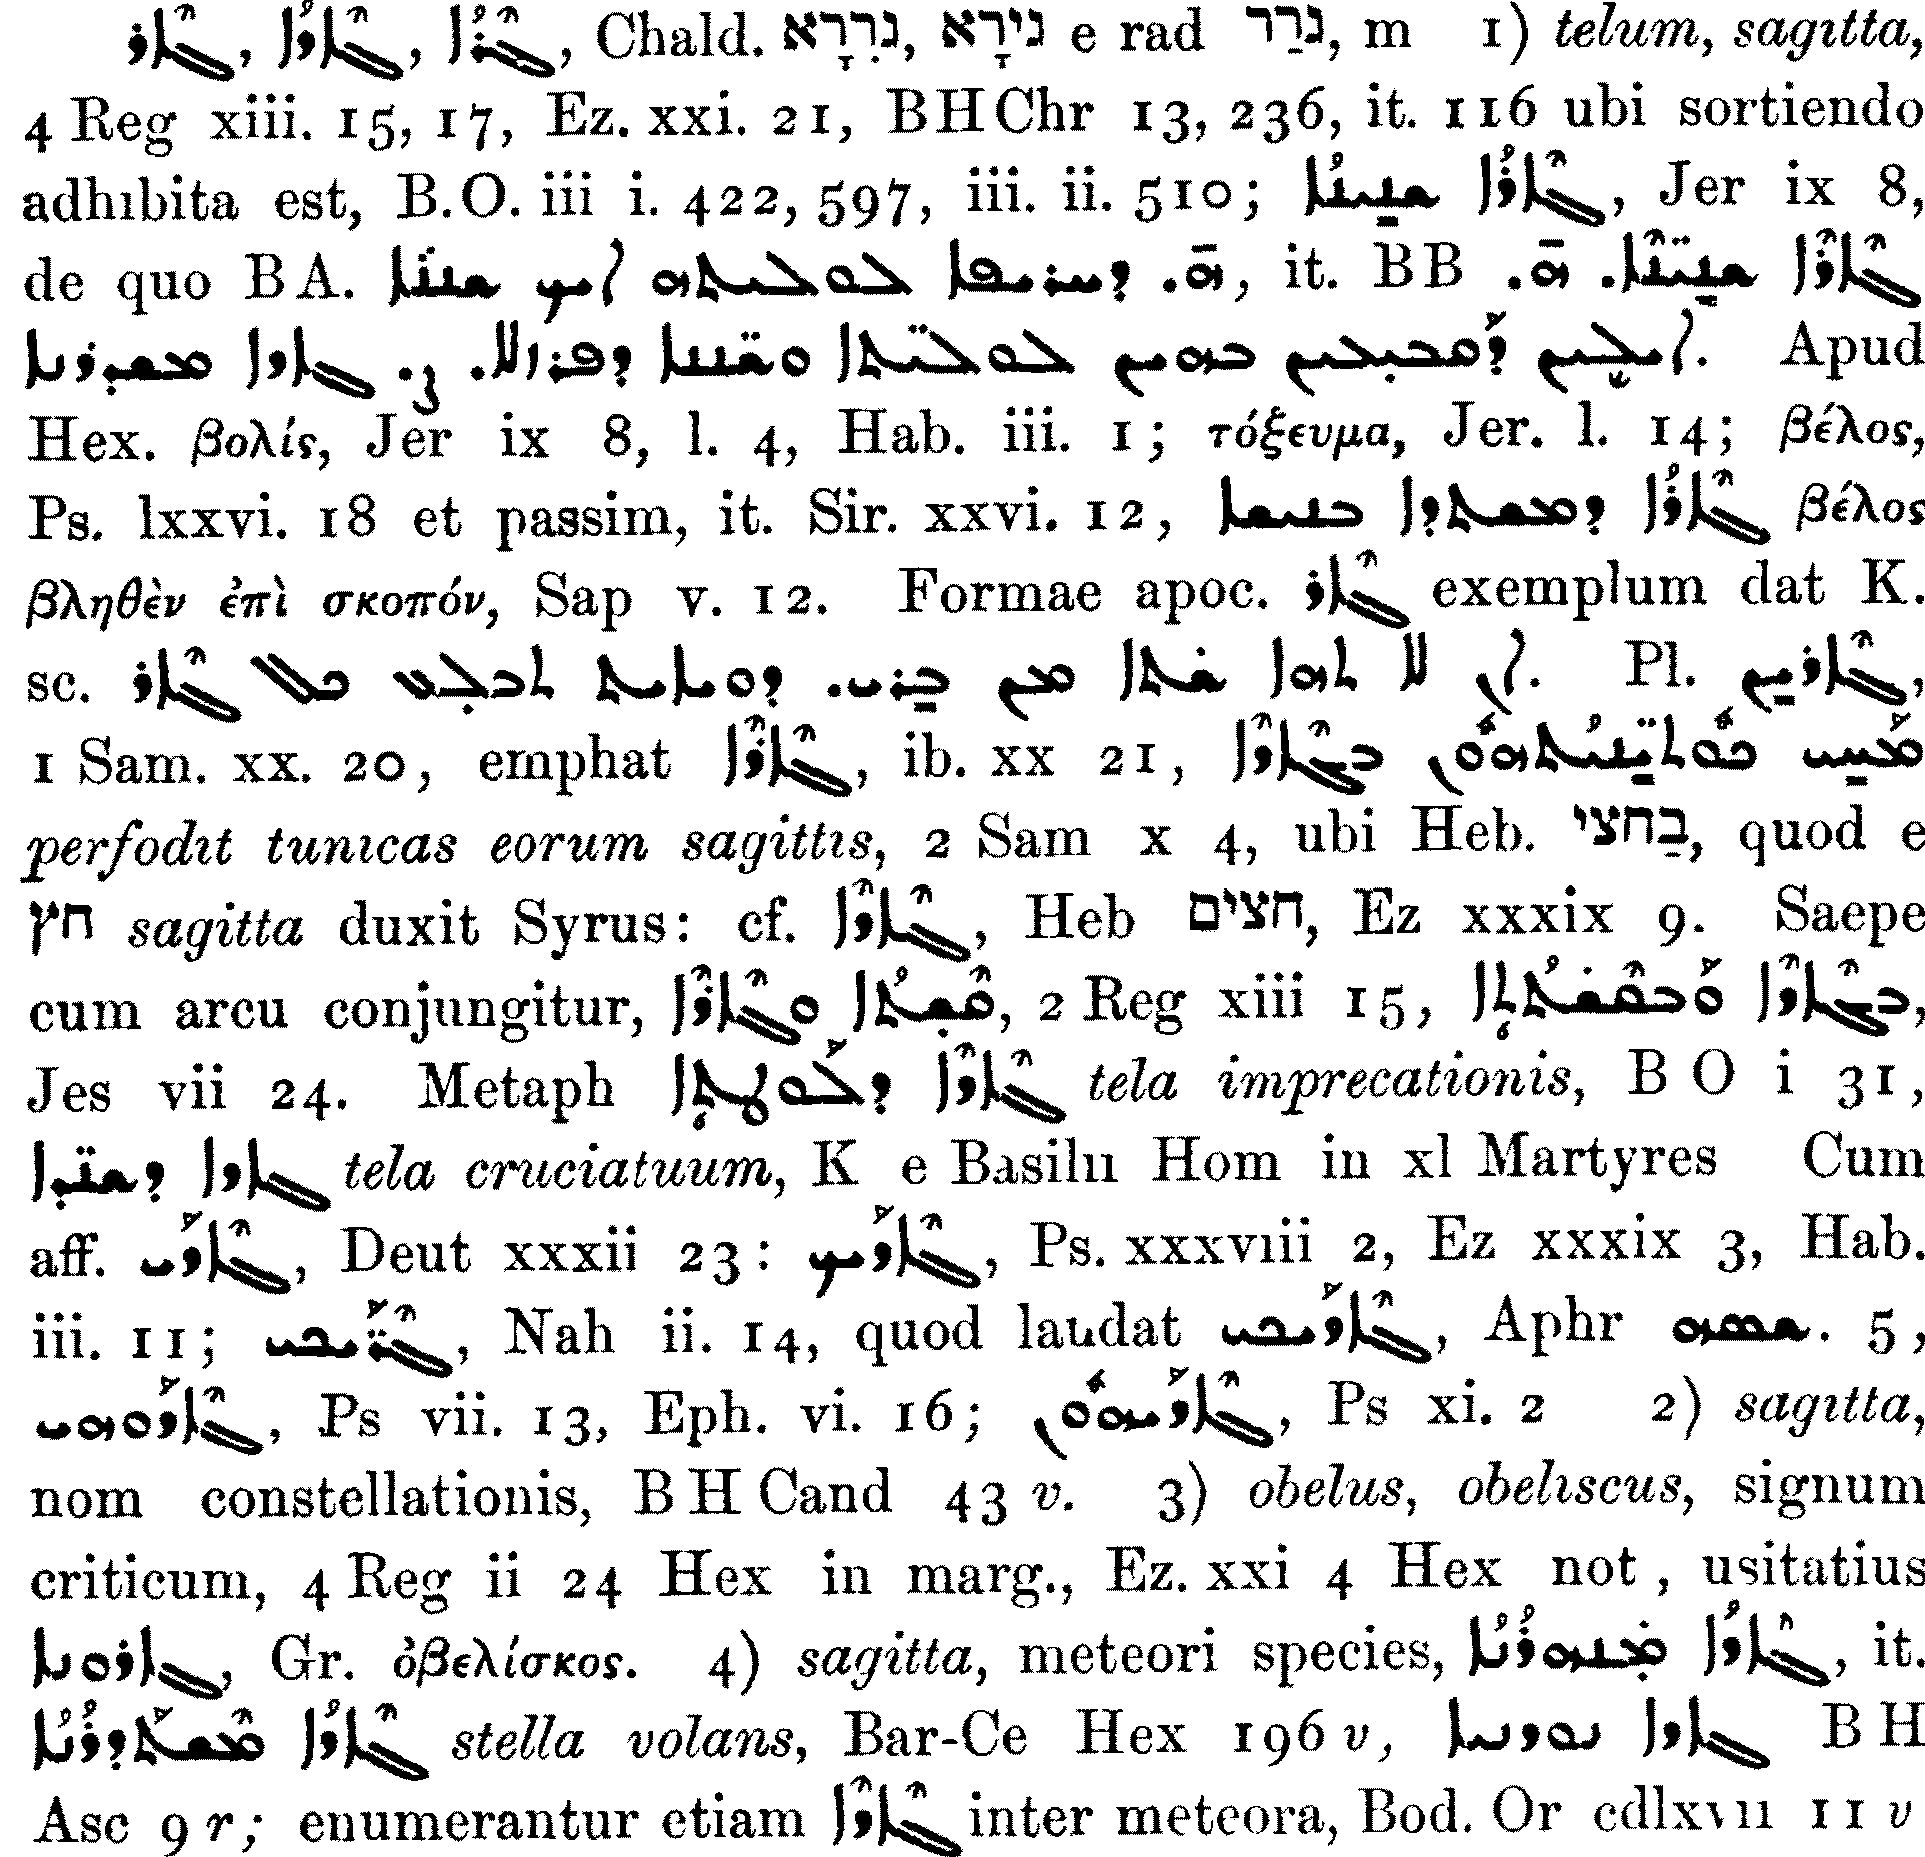 ܓܹܐܪ, ܓܹܐܪܳܐ, ܓܹܪܳܐ, Chald. גִרְרָא, גירָא e rad גרַר, m 1) telum, sagitta,
4 Reg xiii. 15, 17, Ez. xxi. 21, BHChr 13, 236, it. 116 ubi sortiendo
adhibita est, B.O. iii i. 422, 597, iii. ii. 510; ܓܹܐܪܳܐ ܫܢܝܢܳܐ, Jer ix 8,
de quo BA. ܗܘ̄. ܕܚܪܝܦܐ ܠܘܠܝܬܗ ܐܝܟ ܫܢ̈ܢܐ, it. BB ܓܹܐܪ̈ܐ ܫܢܝ̈ܢܐ. ܗܘ̄.
ܐܝܠܝܢ ܕܩܒܝܥܝܢ ܒܗܝܢ ܠܘܠܝ̈ܬܐ ܘܫ̈ܢܢܐ ܕܦܪܙܠܐ. ܓ. ܓܐܪܐ Apud
Hex. βολίς, Jer ix 8, l. 4, Hab. iii. 1; τόξευμα, Jer. l. 14; βέλος,
Ps. lxxvi. 18 et passim, it. Sir. xxvi. 12, ܓܹܐܪܳܐ ܕܡܫܬܕܐ ܒܢܝܫܐ βέλος
βληθὲν ἐπὶ σκοπόν, Sap v. 12. Formae apoc. ܓܹܐܪ exemplum dat K.
sc. ܐܢ ܠܐ ܬܗܘܐ ܫܬܐ ܡܢ ܒܪܝ. ܕܘܝܐܝܬ ܬܒܠܥ ܟܠܠ ܓܹܐܪ. Pl. ܓܹܐܪܝܢ,
1 Sam. xx. 20, emphat ܓܹܐܪ̈ܐ, ib. xx 21, ܡܚܝ ܟܘܬܝ̈ܢܝܬܗܘܢ ܒܓܹܐܪ̈ܐ
perfodit tunicas eorum sagittis, 2 Sam x 4, ubi Heb. בַחצי, quod e
חץ sagitta duxit Syrus: cf. ܓܹܐܪ̈ܐ, Heb חצים, Ez xxxix 9. Saepe
cum arcu conjungitur, ܩܫܬܐ ܘܓܹܐܪ̈ܐ, 2 Reg xiii 15, ܒܓܹܐܪ̈ܐ ܘܒܩܫܬܬܐ,
Jes vii 24. Metaph ܓܹܐܪ̈ܐ ܕܠܘܛܬܐ tela imprecationis, B O i 31,
ܓܐܪܐ ܕܫܢ̈ܕܐ tela cruciatuum, K e Basilii Hom in xl Martyres Cum
aff. ܓܹܐܪܰܝ, Deut xxxii 23: ܓܹܐܪܰܝܟ, Ps. xxxviii 2, Ez xxxix 3, Hab.
iii. 11; ܓܹܪ̈ܝܟܝ, Nah ii. 14, quod laudat ܓܹܐܪܰܝܟܝ, Aphr. 5,
ܓܹܐܪܰܘܗܝ, Ps vii. 13, Eph. vi. 16; ܓܹܐܪܰܝܗܘܢ, Ps xi. 2 2) sagitta,
nom constellationis, B H Cand 43 v. 3) obelus, obeliscus, signum
criticum, 4 Reg ii 24 Hex in marg., Ez. xxi 4 Hex not, usitatius
ܓܐܪܘܢܐ, Gr. ὀβελίσκος. 4) sagitta, meteori species, ܓܹܐܪܳܐ ܡܢܗܪܳܢܳܐ, it.
ܓܹܐܪܳܐ stella volans, Bar-Ce Hex 196 v, ܓܐܪܐ ܢܘܪܢܐ B H
Asc 9 r; enumerantur etiam ܓܹܐܪ̈ܐ inter meteora, Bod. Or cdlxvii 11 v